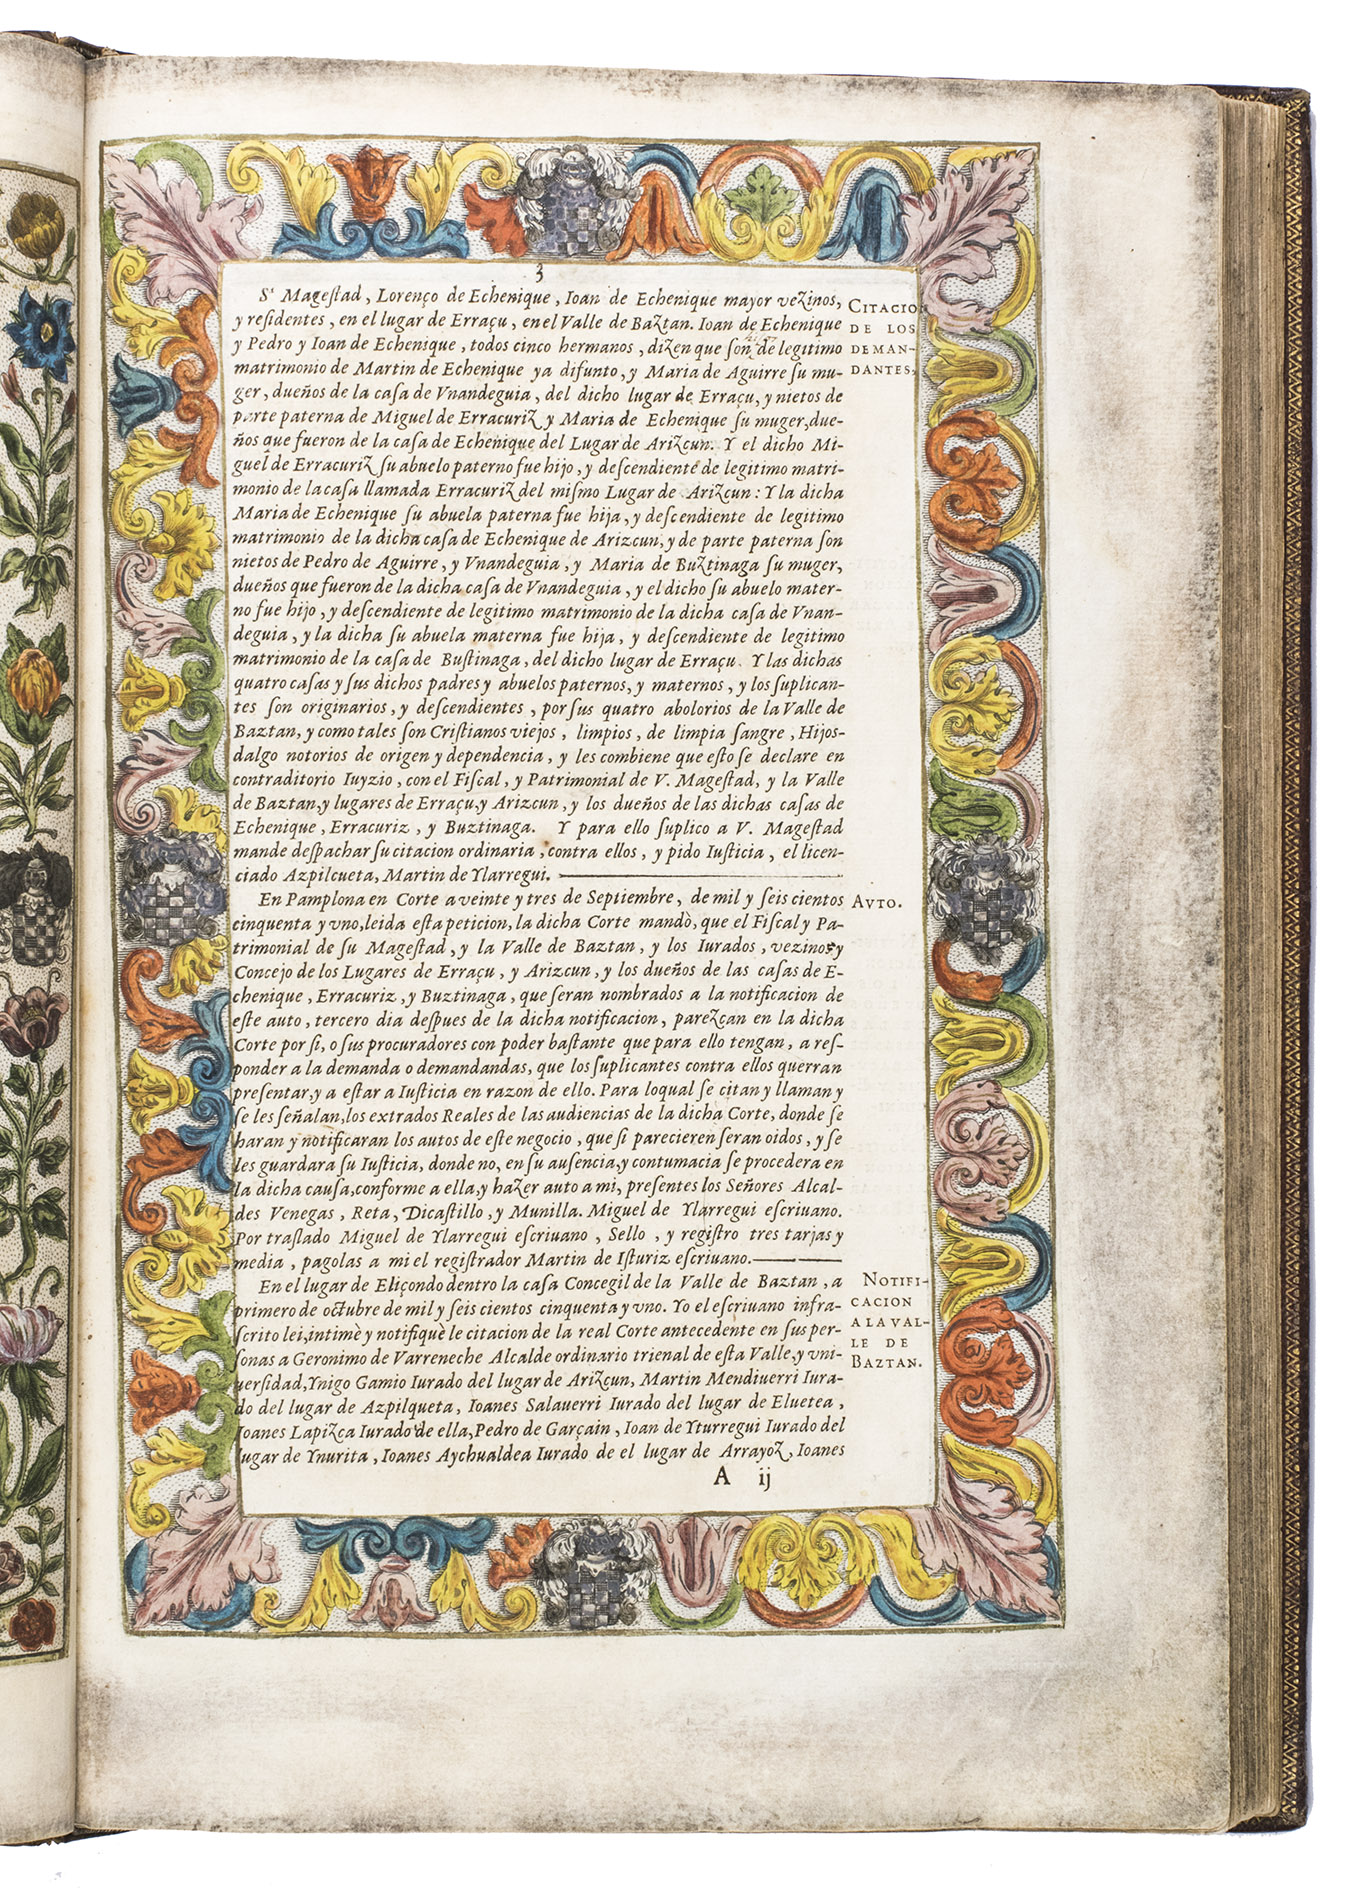 3
S.ᵗ Magestad, Lorenço de Echenique, Ioan de Echenique mayor vezinos,
y residentes, en el lugar de Erraçu, en el Valle de Baztan. Ioan de Echenique
y Pedro y Ioan de Echenique, todos cinco hermanos, dizen que son de legitimo
matrimonio de Martin de Echenique ya difunto, y Maria de Aguirre su mu-
ger, dueños de la casa de Vnandeguia, del dicho lugar de Erraçu, y nietos de
parte paterna de Miguel de Erracuriz y Maria de Echenique su muger, due-
ños que fueron de la casa de Echenique del Lugar de Arizcun. Y el dicho Mi-
guel de Erracuriz su abuelo paterno fue hijo, y descendiente de legitimo matri-
monio de la casa llamada Erracuriz del mismo Lugar de Arizcun: Y la dicha
Maria de Echenique su abuela paterna fue hija, y descendiente de legitimo
matrimonio de la dicha casa de Echenique de Arizcun, y de parte paterna son
nietos de Pedro de Aguirre, y Vnandeguia, y Maria de Buztinaga su muger,
dueños que fueron de la dicha casa de Vnandeguia, y el dicho su abuelo mater-
no fue hijo, y descendiente de legitimo matrimonio de la dicha casa de Vnan-
deguia, y la dicha su abuela materna fue hija, y descendiente de legitimo
matrimonio de la casa de Bustinaga, del dicho lugar de Erraçu. Y las dichas
quatro casas y sus dichos padres y abuelos paternos, y maternos, y los suplican-
tes son originarios, y descendientes, por sus quatro abolorios de la Valle de
Baztan, y como tales son Cristianos viejos, limpios, de limpia sangre, Hijos-
dalgo notorios de origen y dependencia, y les combiene que esto se declare en
contraditorio Iuyzio, con el Fiscal, y Patrimonial de V. Magestad, y la Valle
de Baztan, y lugares de Erraçu, y Arizcun, y los dueños de las dichas casas de
Echenique, Erracuriz, y Buztinaga. Y para ello suplico a V. Magestad
mande despachar su citacion ordinaria, contra ellos, y pido Iusticia, el licen-
ciado Azpilcueta, Martin de Ylarregui.
CITACIO
DE LOS
DEMAN-
DANTES,
En Pamplona en Corte a veinte y tres de Septiembre, de mil y seis cientos
cinquenta y vno, leida esta peticion, la dicha Corte mandò, que el Fiscal y Pa-
trimonial de su Magestad, y la Valle de Baztan, y los Iurados, vezinos y
Concejo de los Lugares de Erraçu, y Arizcun, y los dueños de las casas de E-
chenique, Erracuriz, y Buztinaga, que seran nombrados a la notificacion de
este auto, tercero dia despues de la dicha notificacion, parezcan en la dicha
Corte por si, o sus procuradores con poder bastante que para ello tengan, a res-
ponder a la demanda o demandandas, que los suplicantes contra ellos querran
presentar, y a estar a Iusticia en razon de ello. Para loqual se citan y llaman y
se les señalan, los extrados Reales de las audiencias de la dicha Corte, donde se
haran y notificaran los autos de este negocio, que si parecieren seran oidos, y se
les guardara su Iusticia, donde no, en su ausencia, y contumacia se procedera en
la dicha causa, conforme a ella, y hazer auto a mi, presentes los Señores Alcal-
des Venegas, Reta, Dicastillo, y Munilla. Miguel de Ylarregui escriuano.
Por traslado Miguel de Ylarregui escriuano, Sello, y registro tres tarjas y
media, pagolas a mi el registrador Martin de Isturiz escriuano.
AVTO.
En el lugar de Eliçondo dentro la casa Concegil de la Valle de Baztan, a
primero de octubre de mil y seis cientos cinquenta y vno. Yo el escriuano infra-
scrito lei, intimè y notifiquè le citacion de la real Corte antecedente en sus per-
sonas a Geronimo de Varreneche Alcalde ordinario trienal de esta Valle, y vni-
uersidad, Ynigo Gamio Iurado del lugar de Arizcun, Martin Mendiuerri Iura-
do del lugar de Azpilqueta, Ioanes Salauerri Iurado del lugar de Eluetea,
Ioanes Lapizca Iurado de ella, Pedro de Garçain, Ioan de Yturregui Iurado del
lugar de Ynurita, Ioanes Aychualdea Iurado de el lugar de Arrayoz, Ioanes
NOTIFI-
CACION
A LA VAL-
LE DE
BAZTAN.
A ij